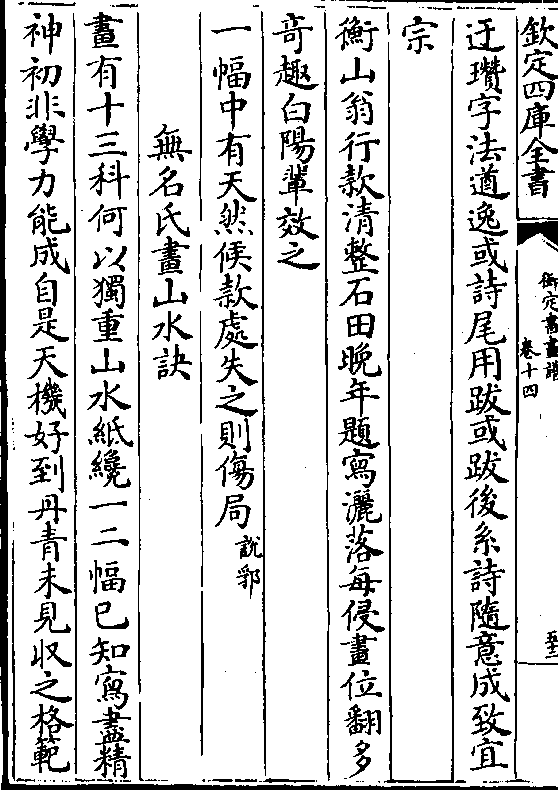 欽定四庫全書
御定書畫譜
卷十四
迂瓚字法遒逸或詩尾用跋或跋後系詩隨意成致宜
宗
衡山翁行款清整石田晚年題寫灑落每侵畫位翻多
竒趣白陽輩效之
一幅中有天然候款處失之則傷局說郛
無名氏畫山水訣
畫有十三科何以獨重山水紙纔一二幅已知寫盡精
神初非學力能成自是天機好到丹青未見収之格範